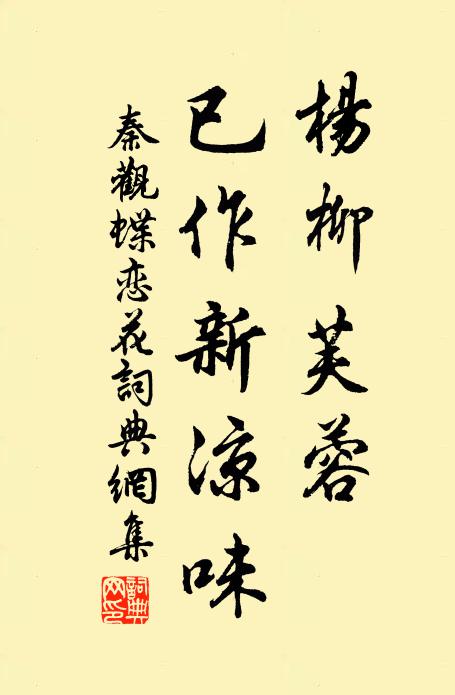 楊柳芙蓉
已作新涼味
秦觀蝶恋花詞典網集
詞典網印